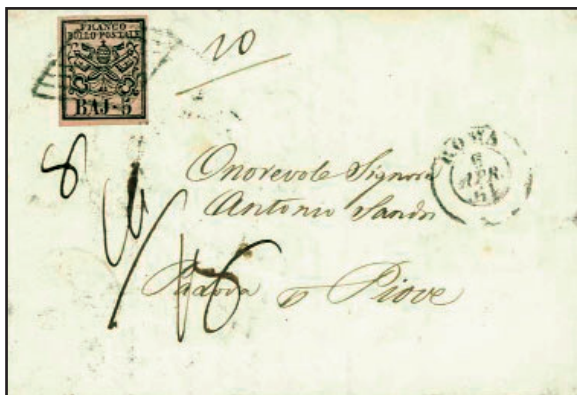 FRANCO
BOLLO POSTALE
BAJ-5
20
8
ROMA
6
APR.
61
Onorevole Signore
Antonio Sandri
Padova p Piove